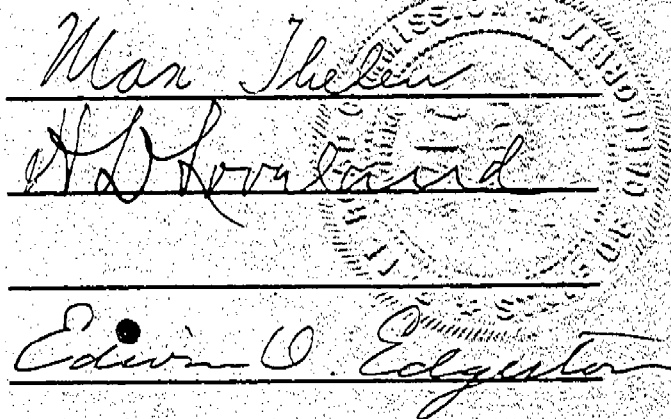 Max Thelen
H D Loveland
Edwin O. Edgerton